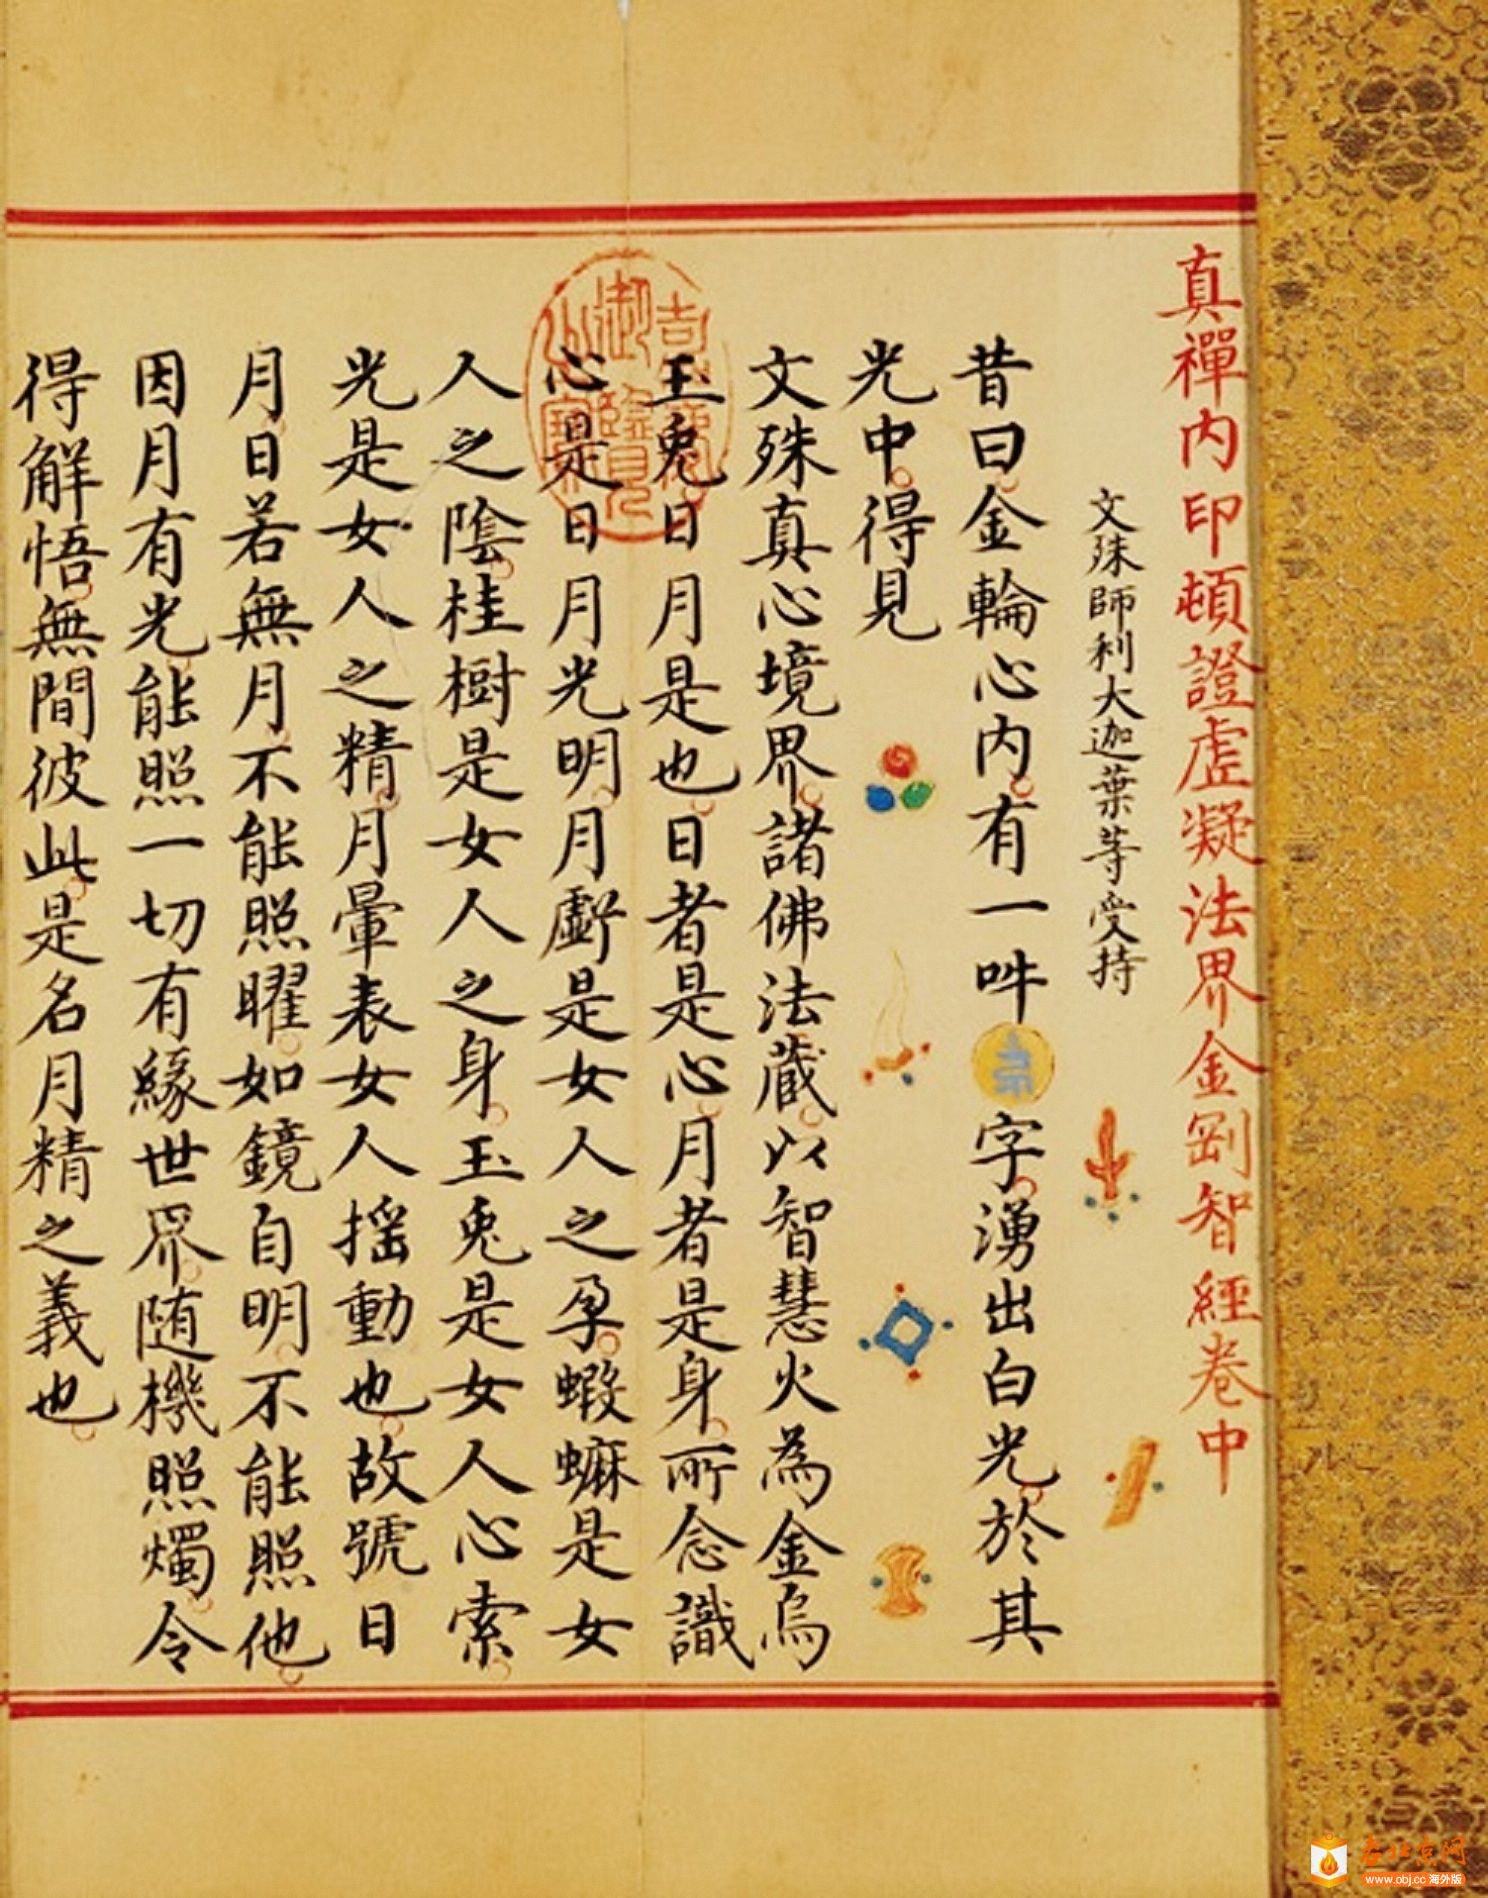 真禪内印頓證虛凝法界金剛智經卷中
文殊師利大迦葉等受持
昔曰金輪心内有一吽字湧出白光於其
光中得見
文殊真心境界諸佛法藏以智慧火為金烏
玉兔日月是也日者是心月者是身所念識
心是日月光明月虧是女人之孕蝦蟆是女
人之陰桂樹是女人之身玉兔是女人心索
光是女人之精月暈表女人揺動也故號日
月日若無月不能照曜如鏡自明不能照他
因月有光能照一切有緣世界随機照燭令
得解悟無間彼此是名月精之義也
御覽
www.obj.cc 海外版